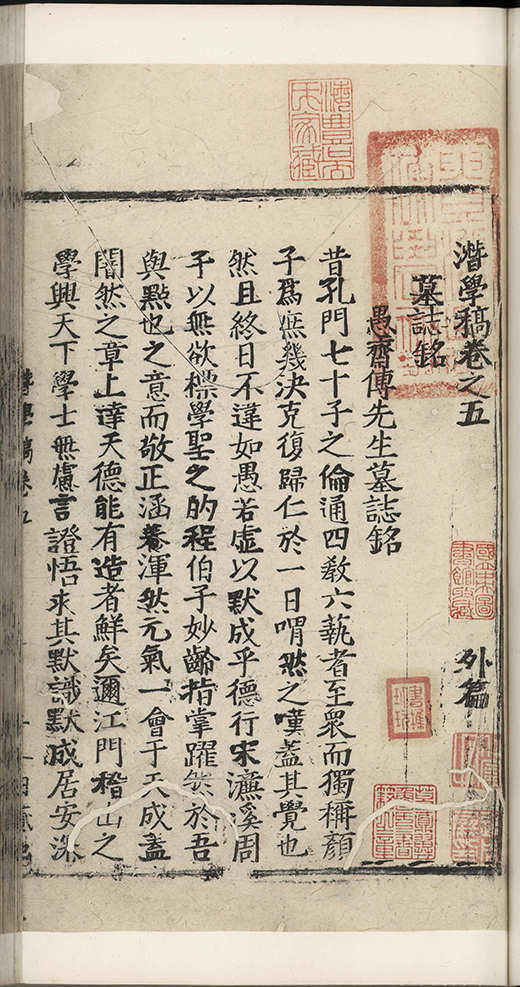 潛學稿卷之五
外篇
墓誌銘
愚齋傅先生墓誌銘
昔孔門七十子之倫通四教六藝者至衆而獨稱顏
子爲庶幾決克復歸仁於一日喟然之嘆蓋其覺也
然且終日不違如愚若虛以默成乎德行宋濂溪周
子以無欲標學聖之的程伯子妙齡指掌躍然於吾
與點也之意而敬正涵養渾然元氣一會于天成蓋
闇然之章上達天德能有造者鮮矣邇江門稽山之
學興天下學士無慮言證悟求其默識默成居安深
潛學稿卷五
國立中央圖書館收藏